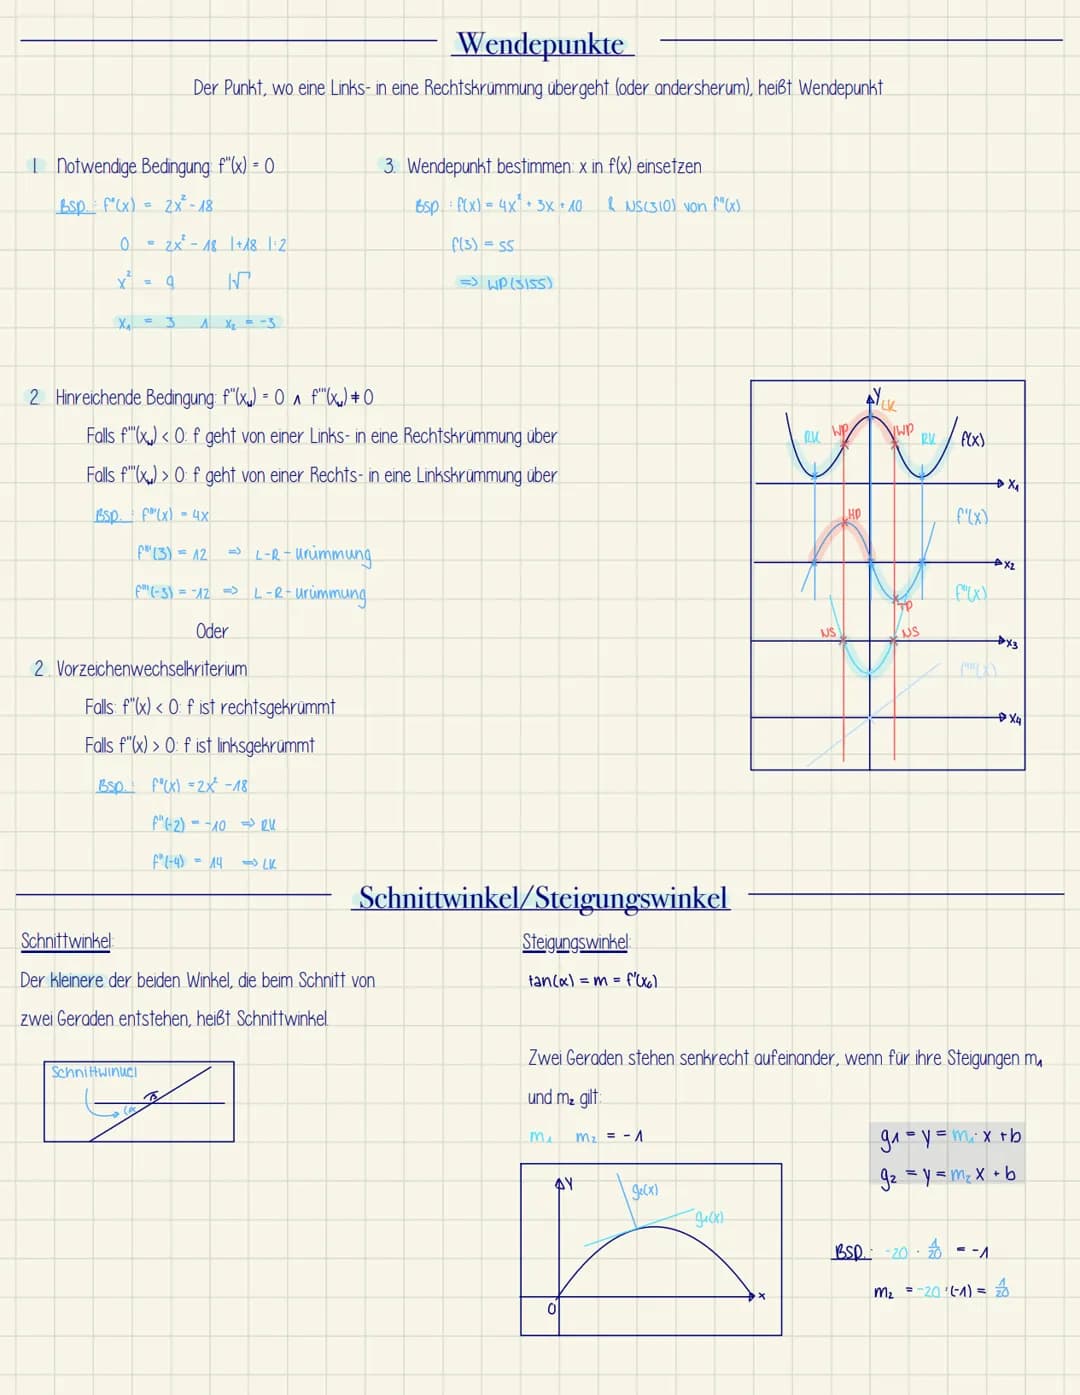 Wendepunkte
Der Punkt, wo eine Links- in eine Rechtskrümmung übergeht (oder andersherum), heißt Wendepunkt
1 Notwendige Bedingung: f"(x) = 0
Bsp.: f"(x) = 2x² - 18
0 = 2x² - 18 |+18 |:2
x² = 9 |√
x₁ = 3 ∧ x₂ = -3
3. Wendepunkt bestimmen: x in f(x) einsetzen
Bsp.: f(x) = 4x² + 3x + 10 & NS(3|0) von f"(x)
f(3) = 55
=> WP(3|55)
2 Hinreichende Bedingung: f"(xw) = 0 ∧ f'''(xw) ≠ 0
Falls f'''(xw) < 0: f geht von einer Links- in eine Rechtskrümmung über
Falls f'''(xw) > 0: f geht von einer Rechts- in eine Linkskrümmung über
Bsp.: f'''(x) = 4x
f'''(3) = 12 => L-R-Krümmung
f'''(-3) = -12 => L-R-Krümmung
Oder
2. Vorzeichenwechselkriterium
Falls: f"(x) < 0: f ist rechtsgekrümmt
Falls f"(x) > 0: f ist linksgekrümmt
Bsp.: f"(x) = 2x² - 18
f"(-2) = -10 => RK
f"(-4) = 14 => LK
Y
LK
RK WP WP RK f(x)
X₁
HP f'(x)
X₂
TP f"(x)
NS NS
X₃
f'''(x)
X₄
Schnittwinkel/Steigungswinkel
Schnittwinkel:
Der kleinere der beiden Winkel, die beim Schnitt von
zwei Geraden entstehen, heißt Schnittwinkel.
Schnittwinkel
α β
Steigungswinkel:
tan(α) = m = f'(x₀)
Zwei Geraden stehen senkrecht aufeinander, wenn für ihre Steigungen m₁
und m₂ gilt:
m₁ m₂ = -1
g₁ = y = m₁· x + b
g₂ = y = m₂ x + b
Y
g₂(x)
g₁(x)
0
x
Bsp.: -20 · 1/20 = -1
m₂ = -20 ·(-1) = 1/20